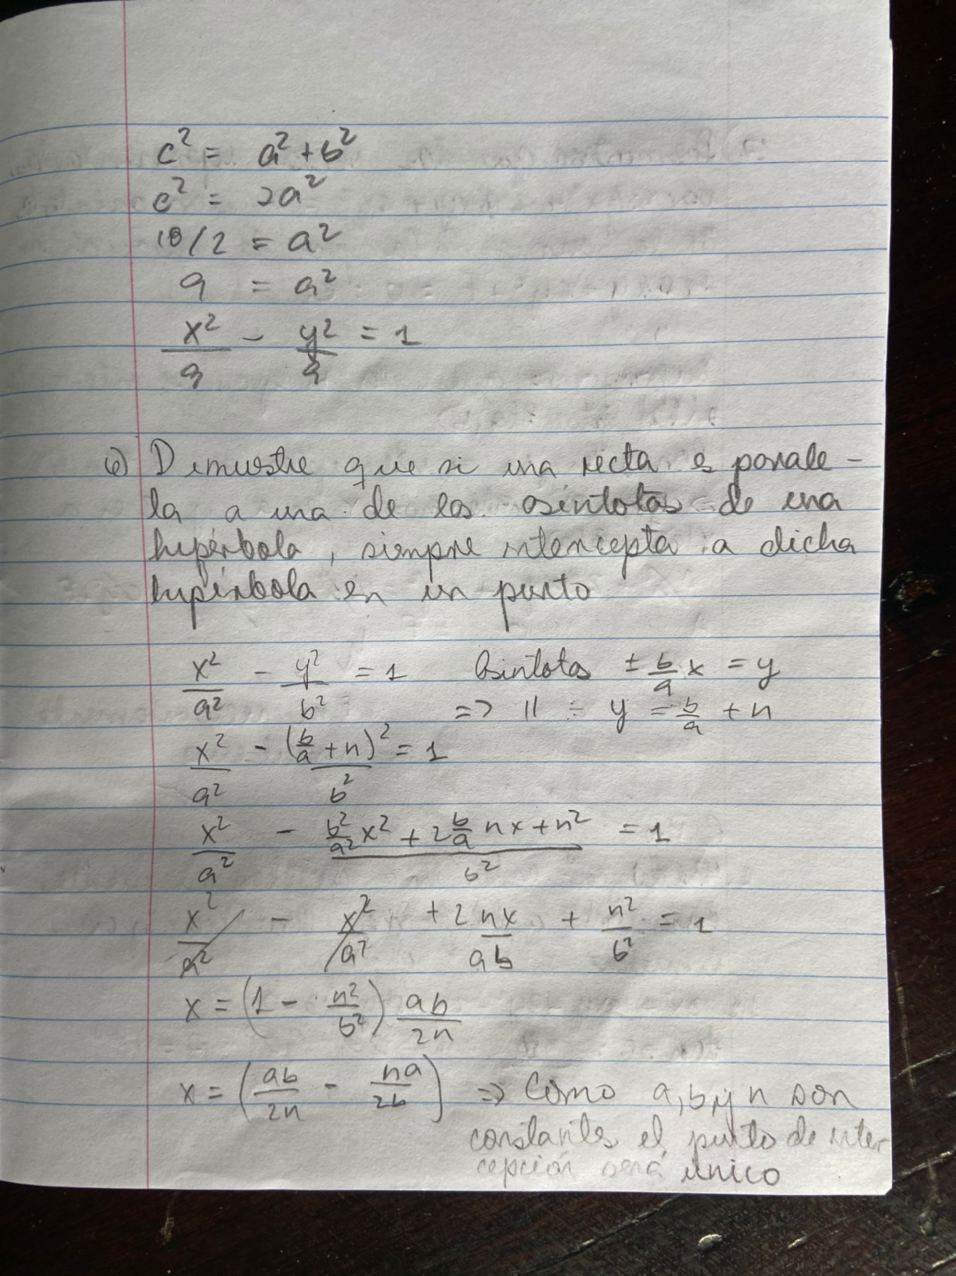 c² = a² + b²
c² = 2a²
18/2 = a²
9 = a²
x²/9 - y²/9 = 1
6) Demuestre que si una recta es parale-
la a una de las asíntotas de una
hipérbola, siempre intercepta a dicha
hipérbola en un punto
x²/a² - y²/b² = 1 Asíntotas ± b/a x = y
=> // = y = b/a + n
x²/a² - (b/a + n)²/b² = 1
x²/a² - (b²/a² x² + 2 b/a nx + n²)/b² = 1
x²/a² - x²/a² + 2 nx/ab + n²/b² = 1
x = (1 - n²/b²) ab/2n
x = (ab/2n - na/2b) => Como a, b, y n son
constantes el punto de inter-
cepción será único